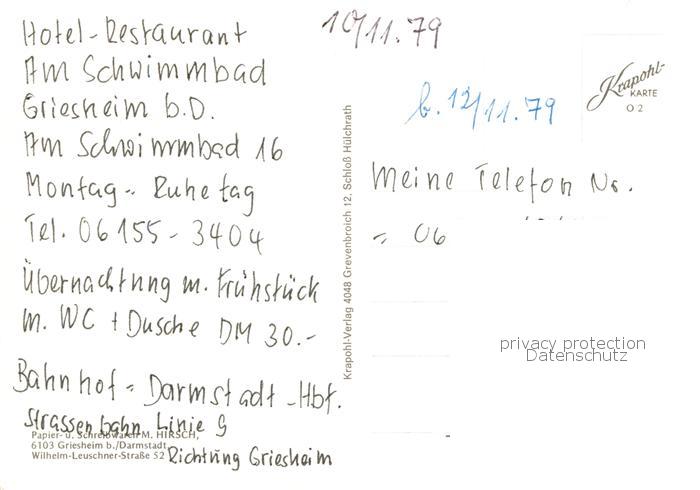 Hotel-Restaurant
Am Schwimmbad
Griesheim b.D.
Am Schwimmbad 16
Montag-Ruhetag
Tel. 06155-3404
Übernachtung m. Frühstück
m. WC + Dusche DM 30.-
Bahnhof = Darmstadt-Hbf.
Strassenbahn Linie 9
Richtung Griesheim
Papier- u. Schreibwaren M. HIRSCH,
6103 Griesheim b./Darmstadt
Wilhelm-Leuschner-Straße 52
Krapohl-Verlag 4048 Grevenbroich 12, Schloß Hülchrath
10/11.79
b. 12/11.79
Krapohl-
KARTE
O 2
Meine Telefon Nr.
= 06
privacy protection
Datenschutz